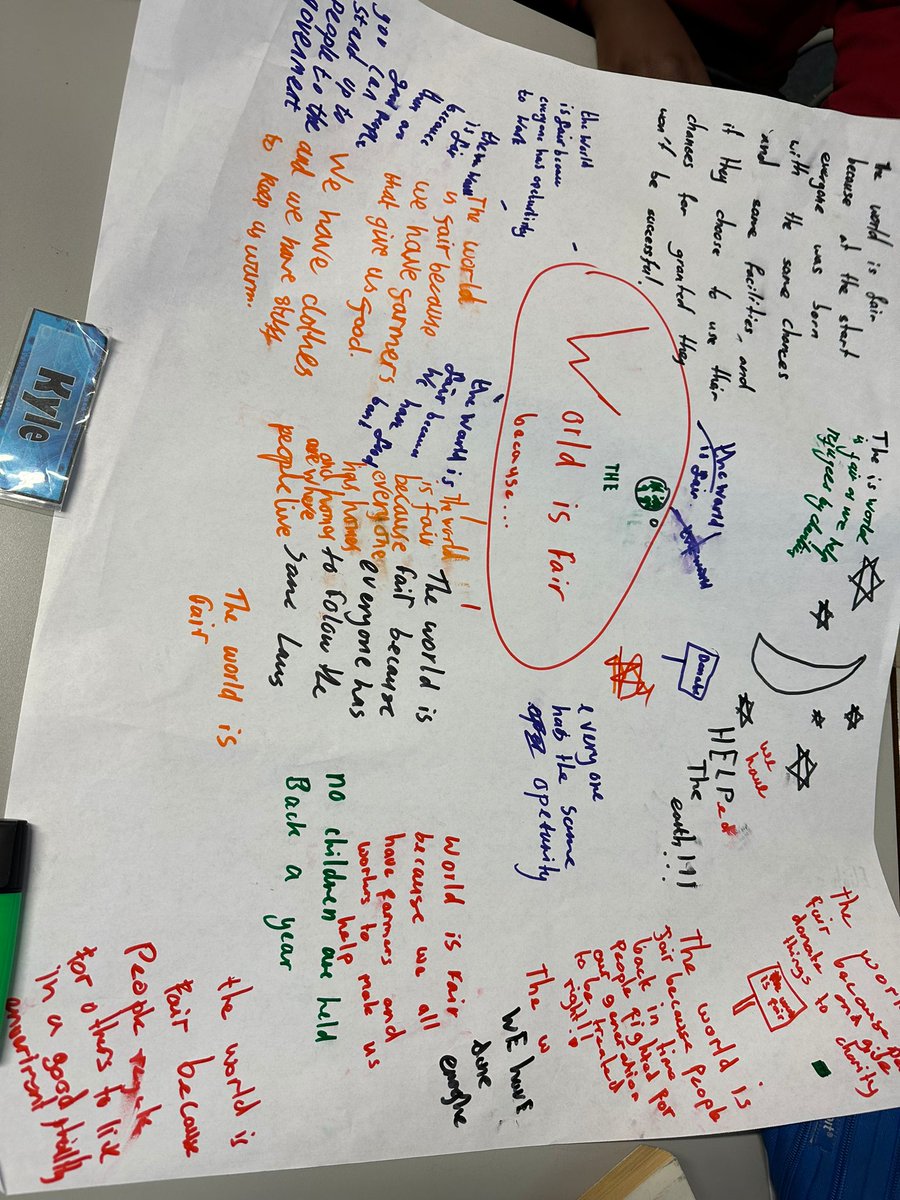 The world is fair
because at the start
everyone was born
with the same chances
and same facilities, and
if they choose to use their
chances for granted they
won't be successful.
the world
is fair becau
to
The is world
is fair as we help
THE
World is fair
because...
the world
is fair
Donate
we
have
HELPed
The
earth!!!
every one
hab the same
opetunity
good people
you can
stand up to
people to the
goverment
The world
is fair because
we have farmers
that give us good.
We have clothes
and we have stuff
to keep us wurm.
the world is
fair because
we have
The world
is fair
because
everyone
has homes
and homes
are where
people live
The world is
fair because
everyone has
to folow the
same laws
The world is
fair
no children are held
Back a year
World is fair
because we all
have farmers and
workes to make us
help
WE have
done
enoghe
The w
The world is
fair because people
back in time
people fighted for
our generation
to be treated
right!!
the world
fair because
donate and give
things to charity
the world is
fair because
People
for others to live
in a good
Kyle